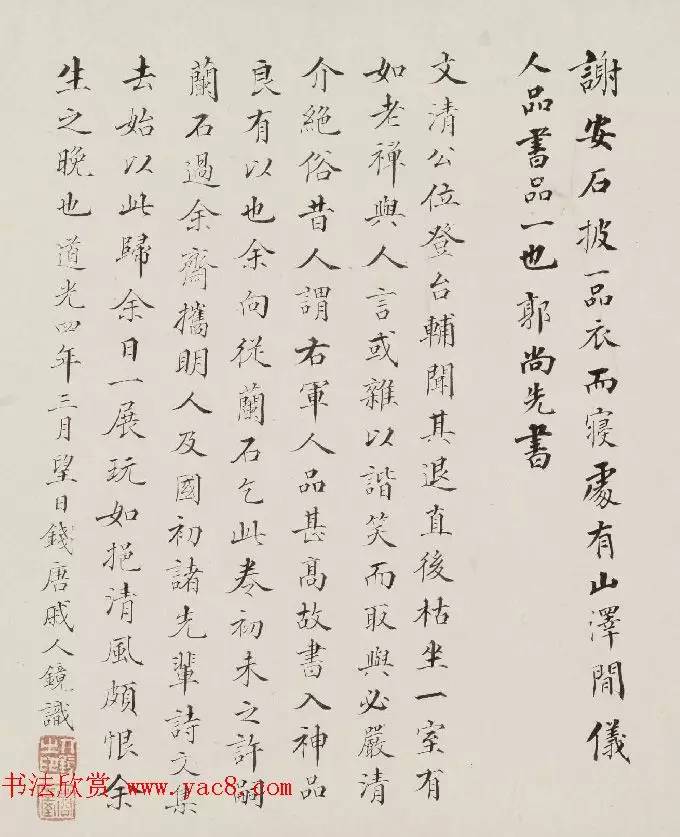 謝安石披一品衣而寝處有山澤間儀
人品書品一也郭尚先書
文清公位登台輔聞其退直後枯坐一室有
如老禪與人言或雜以諧笑而取與必嚴清
介絕俗昔人謂右軍人品甚高故書入神品
良有以也余向從蘭石乞此卷初未之許嗣
蘭石過余齋攜明人及國初諸先輩詩文集
去始以此歸余日一展玩如挹清風頗恨余
生之晚也道光四年三月望日錢唐戚人鏡識
书法欣赏www.yac8.com